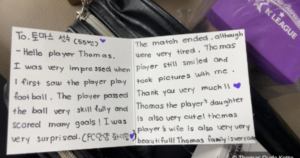 To. 토마스 선수 (55번)
- Hello player Thomas.
I was very impressed when
I first saw the player play
football. The player passed
the ball very skillfully and
scored many goals! I was
very surprised. (FC안양 화이팅
The match ended, although
were very tired. Thomas
player still smiled and
took pictures with me.
Thank you very much!!
Thomas the player's daughter
is also very cute! thomas
player's wife is also very very
beautiful! Thomas family is very cute
K LEAGUE
© Thomas Oude Kotte